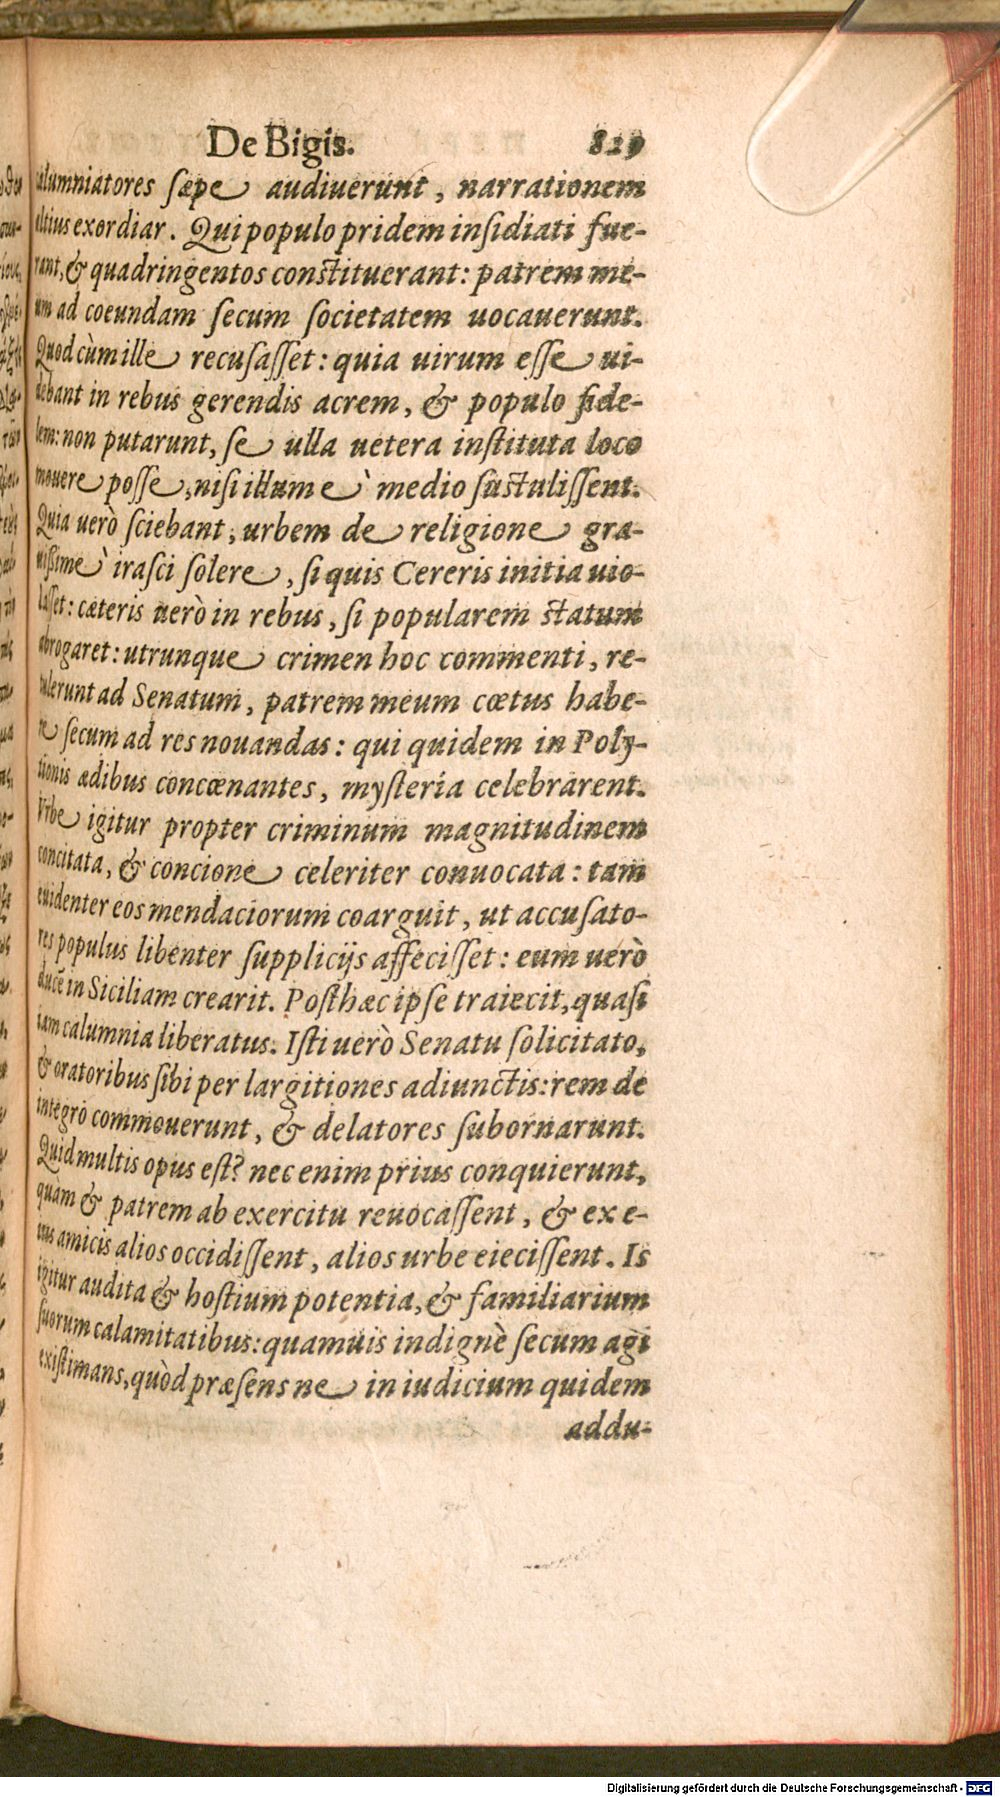 De Bigis. 829
calumniatores sæpe audiuerunt, narrationem
altius exordiar. Qui populo pridem insidiati fue-
rant, & quadringentos constituerant: patrem me-
um ad coeundam secum societatem uocauerunt.
Quod cùm ille recusasset: quia uirum esse ui-
debant in rebus gerendis acrem, & populo fide-
lem: non putarunt, se ulla uetera instituta loco
mouere posse, nisi illum è medio sustulissent.
Quia uerò sciebant, urbem de religione gra-
uissimè irasci solere, si quis Cereris initia uio-
lasset: cæteris uerò in rebus, si popularem statum
abrogaret: utrunque crimen hoc commenti, re-
tulerunt ad Senatum, patrem meum cœtus habe-
re secum ad res nouandas: qui quidem in Poly-
tionis ædibus concœnantes, mysteria celebrarent.
Vrbe igitur propter criminum magnitudinem
concitata, & concione celeriter conuocata: tam
euidenter eos mendaciorum coarguit, ut accusato-
res populus libenter supplicijs affecisset: eum uerò
ducē in Siciliam crearit. Post hæc ipse traiecit, quasi
iam calumnia liberatus. Isti uerò Senatu solicitato,
& oratoribus sibi per largitiones adiunctis: rem de
integro commouerunt, & delatores subornarunt.
Quid multis opus est? nec enim prius conquierunt,
quàm & patrem ab exercitu reuocassent, & ex e-
ius amicis alios occidissent, alios urbe eiecissent. Is
igitur audita & hostium potentia, & familiarium
suorum calamitatibus: quamuis indignè secum agi
existimans, quòd præsens ne in iudicium quidem
addu-
Digitalisierung gefördert durch die Deutsche Forschungsgemeinschaft - DFG